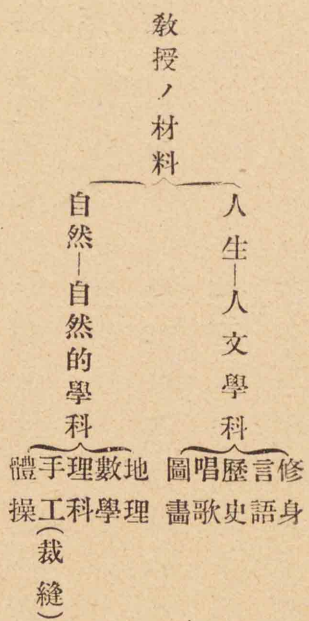 教授ノ材料
人生—人文學科
修身
言語
歷史
唱歌
圖畵
自然—自然的學科
地理
數學
理科
手工(裁縫)
體操